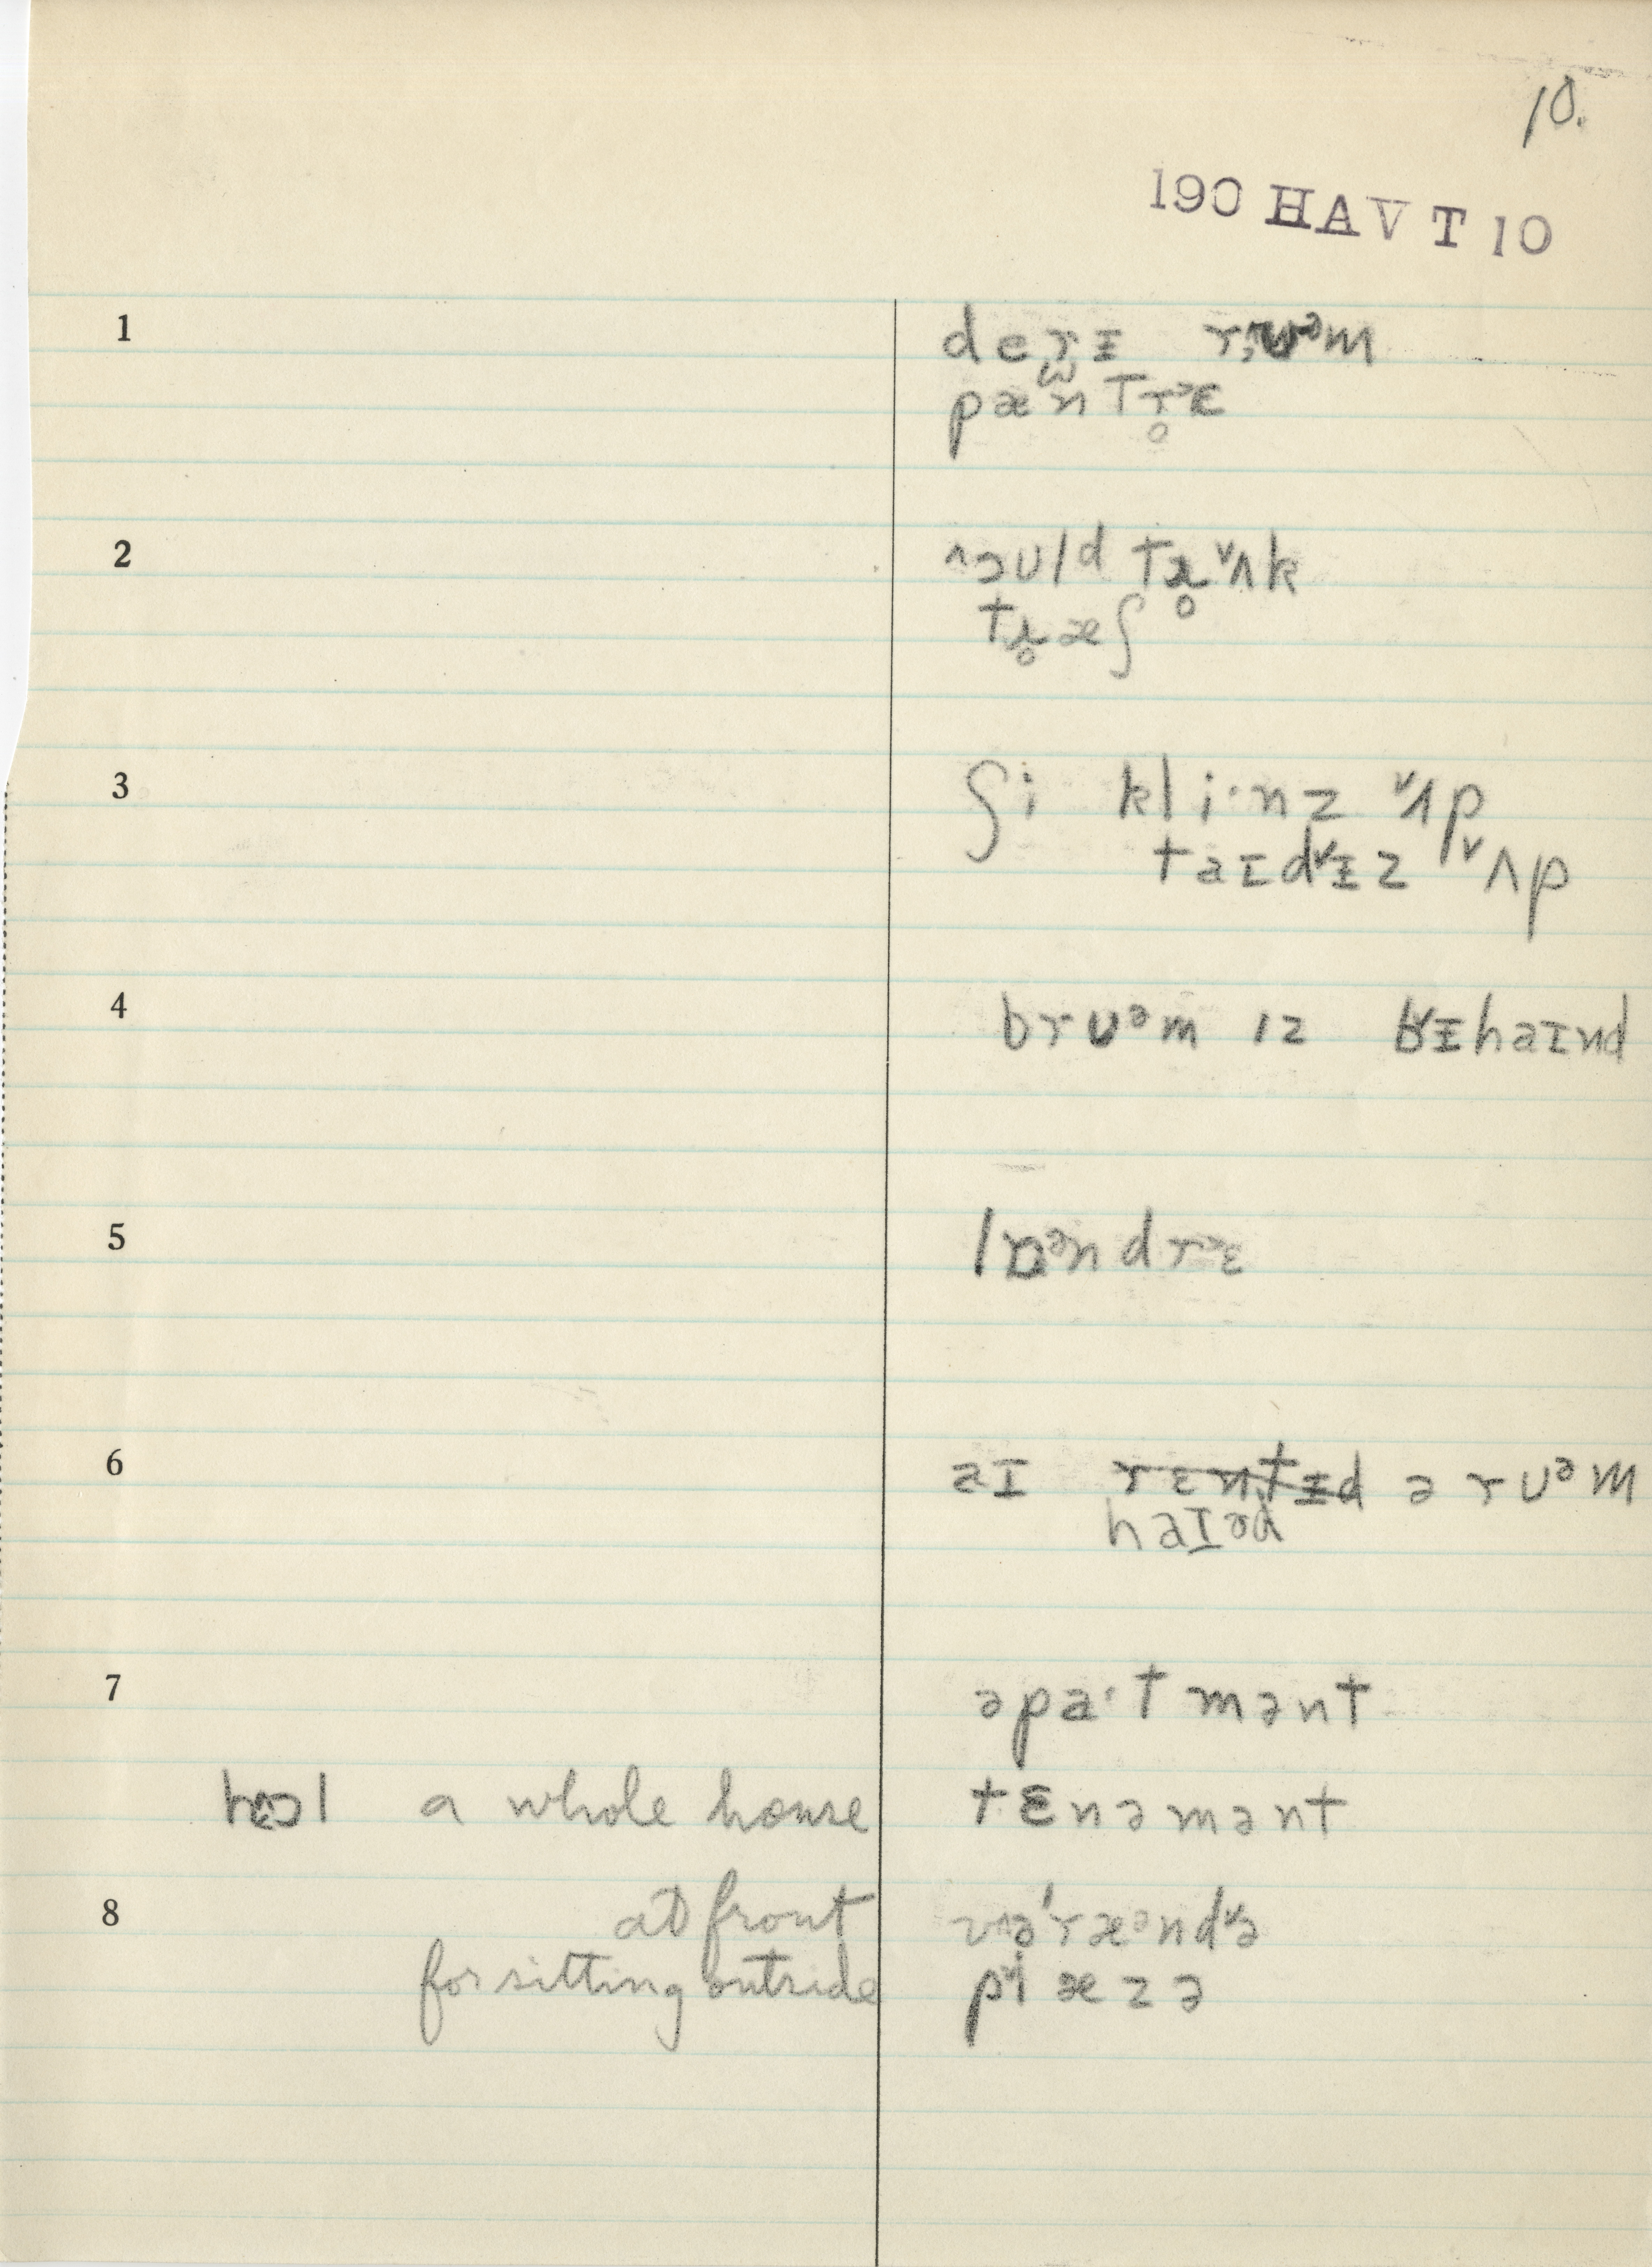 10.
190 HAV T 10
1 deɾɪ rʊᵊm
pæntrᵊɛ
2 ^ɔʊld trʌk
træʃ
3 ʃi kli·nz ˅ʌp
taɪd˅ɪz ˅ʌp
4 brʊᵊm ɪz bɪhaɪnd
5
6 aɪ rɛntɪd ə rʊᵊm
haɪəd
7 əpa·tmənt
a whole house tɛnəmənt
8 at front
for sitting outside p˅iæzə